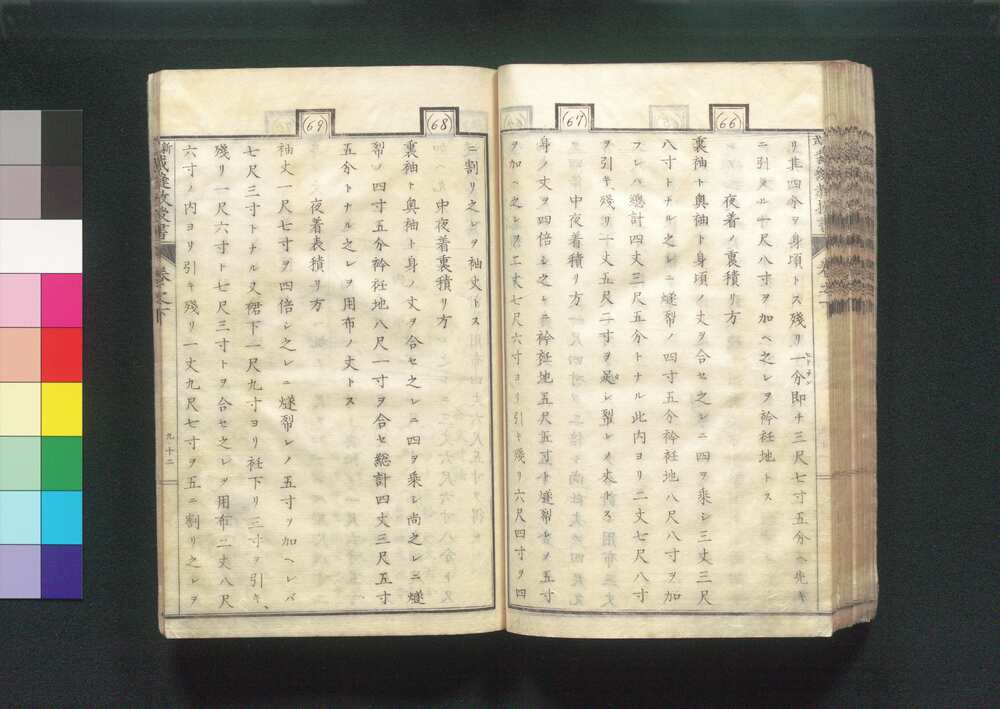 (66)
リ其四分ヲ身頃トス殘リ一分即チ三尺七寸五分ヘ先キ
ニ引タル一尺八寸ヲ加ヘ之レヲ衿衽地トス
夜着ノ裏積リ方
裏袖ト奥袖ト身頃ノ丈ヲ合セ之レニ四ヲ乘シ三丈三尺
八寸トナル之レニ燧裂ノ四寸五分衿衽地八尺八寸ヲ加
フレバ總計四丈三尺五分トナル此内ヨリ二丈七尺八寸
ヲ引キ殘リ一丈五尺二寸ヲ足シ裂レノ丈トス
(67)
中夜着積リ方
身ノ丈ヲ四倍シ之レニ衿衽地五尺五寸ト燧裂レノ五寸
ヲ加ヘ之レヲ二丈七尺六寸ヨリ引キ殘リ六尺四寸ヲ四
ニ割リ之レヲ袖丈トス
(68)
中夜着裏積リ方
裏袖ト奥袖ト身ノ丈ヲ合セ之レニ四ヲ乘シ尚之レニ燧
裂ノ四寸五分衿衽地八尺一寸ヲ合セ總計四丈三尺五寸
五分トナル之レヲ用布ノ丈トス
(69)
夜着表積リ方
袖丈一尺七寸ヲ四倍シ之レニ燧裂レノ五寸ヲ加ヘレバ
七尺三寸トナル又裾下一尺九寸ヨリ衽下リ三寸ヲ引キ、
殘リ一尺六寸ト七尺三寸トヲ合セ之レヲ用布二丈八尺
六寸ノ内ヨリ引キ殘リ一丈九尺七寸ヲ五ニ割リ之レヲ
新裁縫教授書
卷之下
九十二